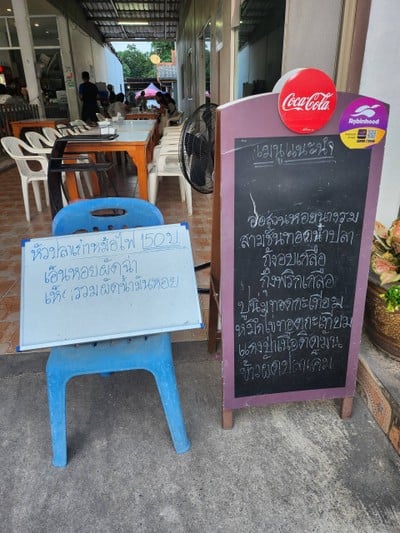 หัวปลาเก๋าหม้อไฟ 150 บ.
เอ็นหอยผัดฉ่า
เห็ดรวมผัดน้ำมันหอย
Coca-Cola
Robinhood
เมนูแนะนำ
ออส่วนหอยนางรม
สามชั้นทอดน้ำปลา
กุ้งอบเกลือ
กุ้งพริกเกลือ
ปูนิ่มทอดกระเทียม
หมึกไข่ทอดกระเทียม
แกงป่า
ข้าวผัดปลาเค็ม